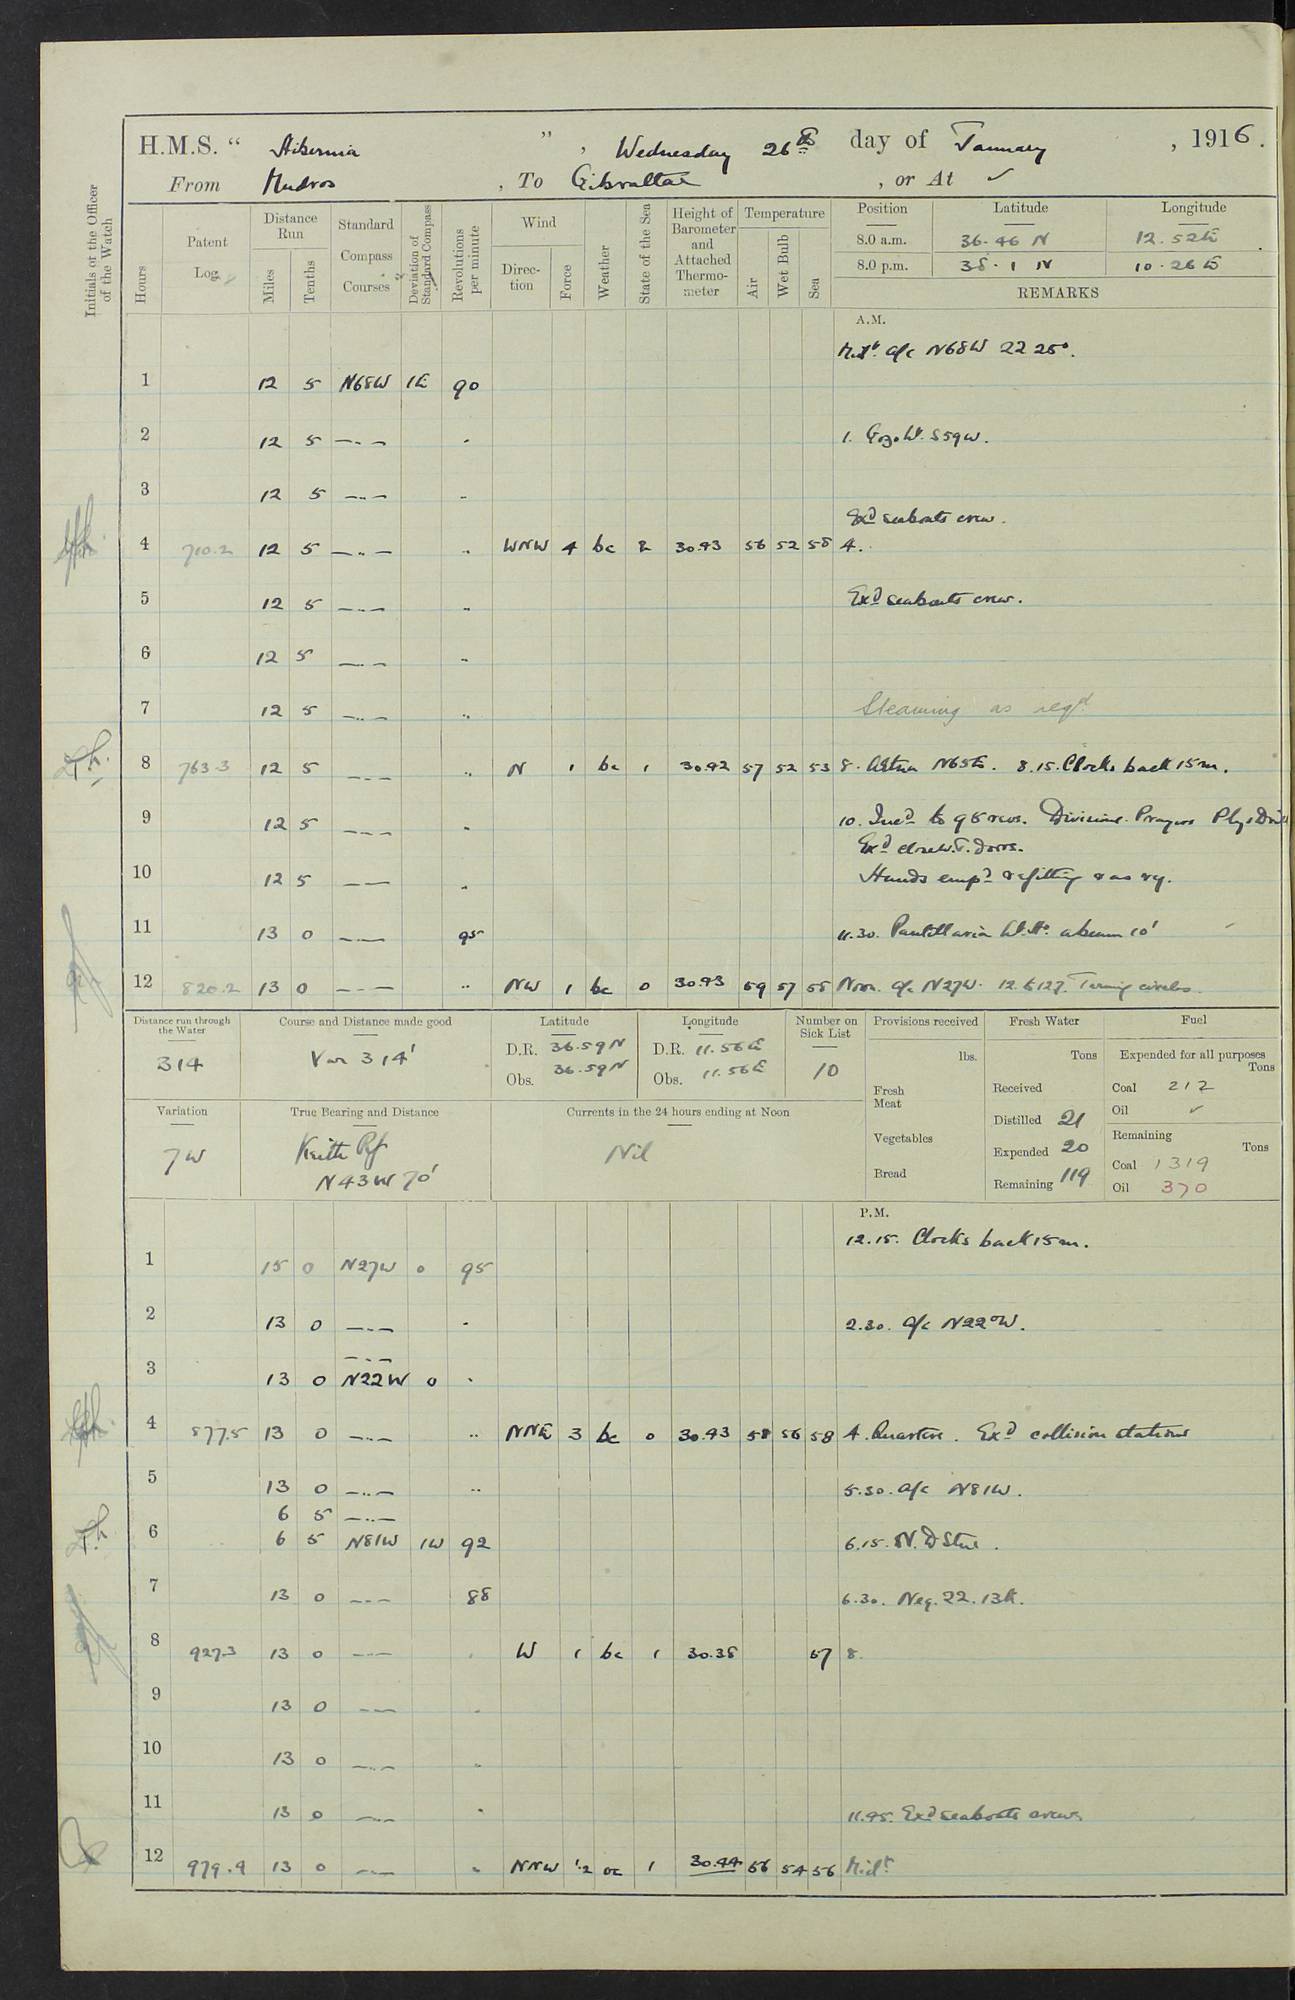 H.M.S. " Hibernia ", Wednesday 26th day of January, 1916.
From Mudros, To Gibraltar, or At ✓
Initials of the Officer of the Watch
Hours
Patent Log
Distance Run
Miles
Tenths
Standard Compass Courses
Deviation of Standard Compass
Revolutions per minute
Wind
Direction
Force
Weather
State of the Sea
Height of Barometer and Attached Thermometer
Temperature
Air
Wet Bulb
Sea
Position Latitude Longitude
8.0 a.m. 36.46 N 12.52E
8.0 p.m. 38.1 N 10.26 E
REMARKS
A.M.
Midt. a/c N68W 22 25°.
1 12 5 N68W 1E 90
2 12 5 —..— " 1. Gozo Lt. S59W.
3 12 5 —..— "
Exd seaboats crew.
4 710.2 12 5 —..— " WNW 4 bc 2 30.43 56 52 58 4.
5 12 5 —..— " Exd seaboats crew.
6 12 5 —..— "
7 12 5 —..— " Steaming as reqd.
8 763.3 12 5 —..— " N 1 bc 1 30.42 57 52 53 8. Etna N65E. 8.15. Clocks back 15m.
9 12 5 —..— " 10. Incd to 98 revs. Divisions. Prayers Phys Drill
Exd close W.T. doors.
10 12 5 —..— " Hands empd refitting & as ry.
11 13 0 —..— 95 11.30. Pantellaria Lt. Ho. abeam 10'
12 820.2 13 0 —..— " NW 1 bc 0 30.43 59 57 58 Noon. a/c N27W. 12 to 127. Turning circles.
Distance run through the Water
Course and Distance made good
Latitude
Longitude
Number on Sick List
Provisions received
Fresh Water
Fuel
314
Var 314'
D.R. 36.59N
Obs. 36.59N
D.R. 11.56E
Obs. 11.56E
10
lbs.
Fresh Meat
Vegetables
Bread
Tons
Received
Distilled 21
Expended 20
Remaining 119
Expended for all purposes
Tons
Coal 212
Oil ✓
Remaining
Tons
Coal 1319
Oil 370
Variation
7W
True Bearing and Distance
Keith Rf
N43W 70'
Currents in the 24 hours ending at Noon
Nil
P.M.
12.15. Clocks back 15m.
1 15 0 N27W 0 95
2 13 0 —..— " 2.30. a/c N22°W.
—..—
3 13 0 N22W 0 "
4 877.5 13 0 —..— " NNE 3 bc 0 30.43 58 56 58 4. Quarters. Exd collision stations
5 13 0 —..— " 5.30. a/c N81W.
6 5 —..—
6 6 5 N81W 1W 92 6.15. N.D Stns.
7 13 0 —..— 88 6.30. Neg. 22. 13k.
8 927.3 13 0 —..— " W 1 bc 1 30.38 57 8.
9 13 0 —..— "
10 13 0 —..— "
11 13 0 —..— " 11.45. Exd seaboats crews
12 979.4 13 0 —..— " NNW 1.2 oc 1 30.44 56 54 56 Midt